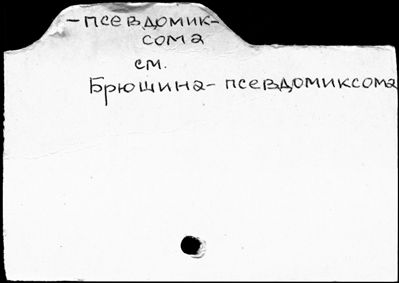 -псевдомик-
сома
см.
Брюшина- псевдомиксома